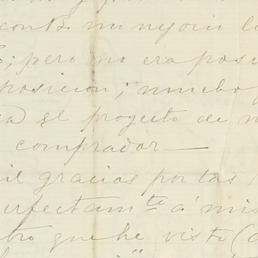 mi negocio
; pero no era posi
posicion; mucho
el proyecto de
comprador —
mil gracias por las
perfectamte á mis
que he visto (a